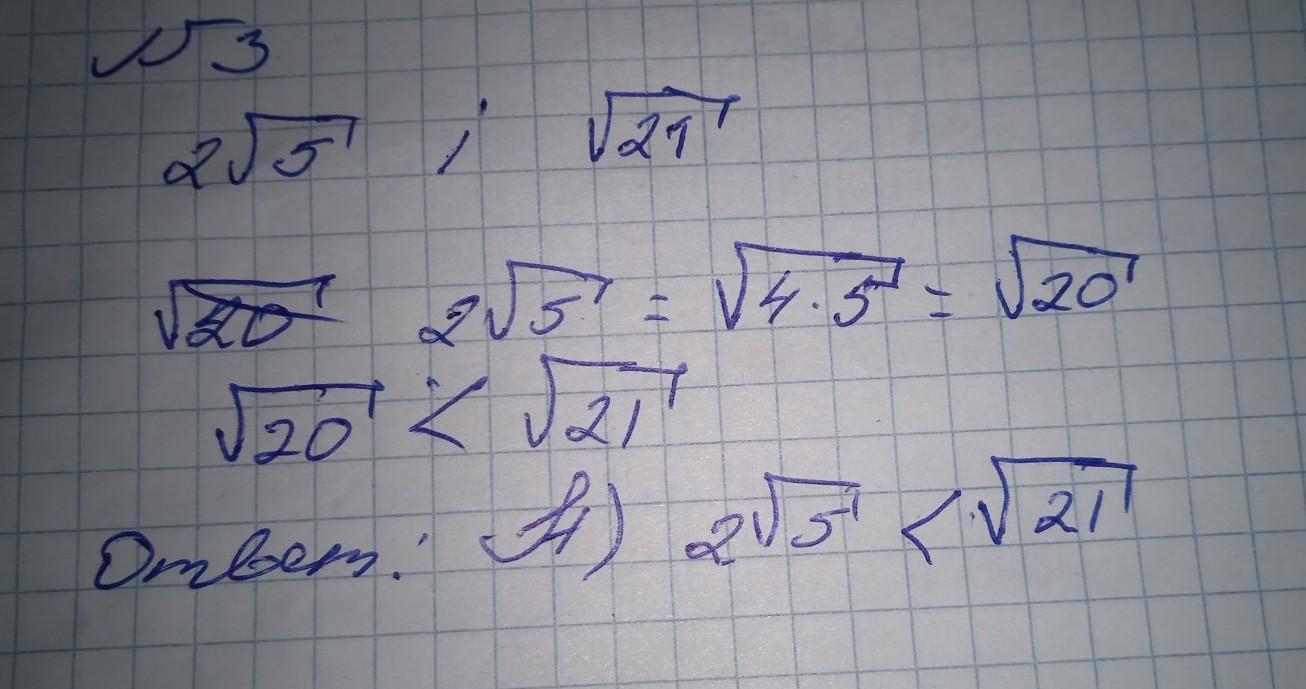 №3
2√5 ; √21
√20 2√5 = √4·5 = √20
√20 < √21
Ответ: А) 2√5 < √21